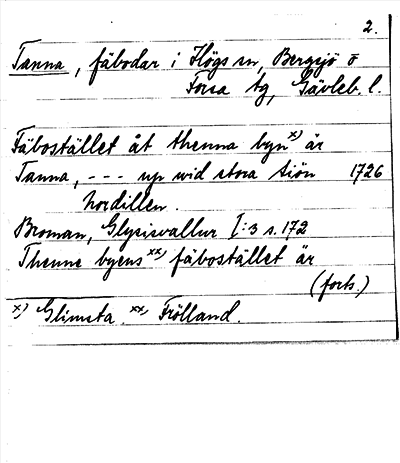 2.
Tanna, fäbodar i Högs sn, Bergsjö o
Forsa tg, Gävleb. l.
Fäbostället åt thenna byn x) är
Tanna, --- up wid stora siön 1726
Nordillen.
Broman, Glysisvallur I:3 s. 172
Thenne byens xx) fäbostället är
(forts.)
x) Glimsta. xx) Frölland.